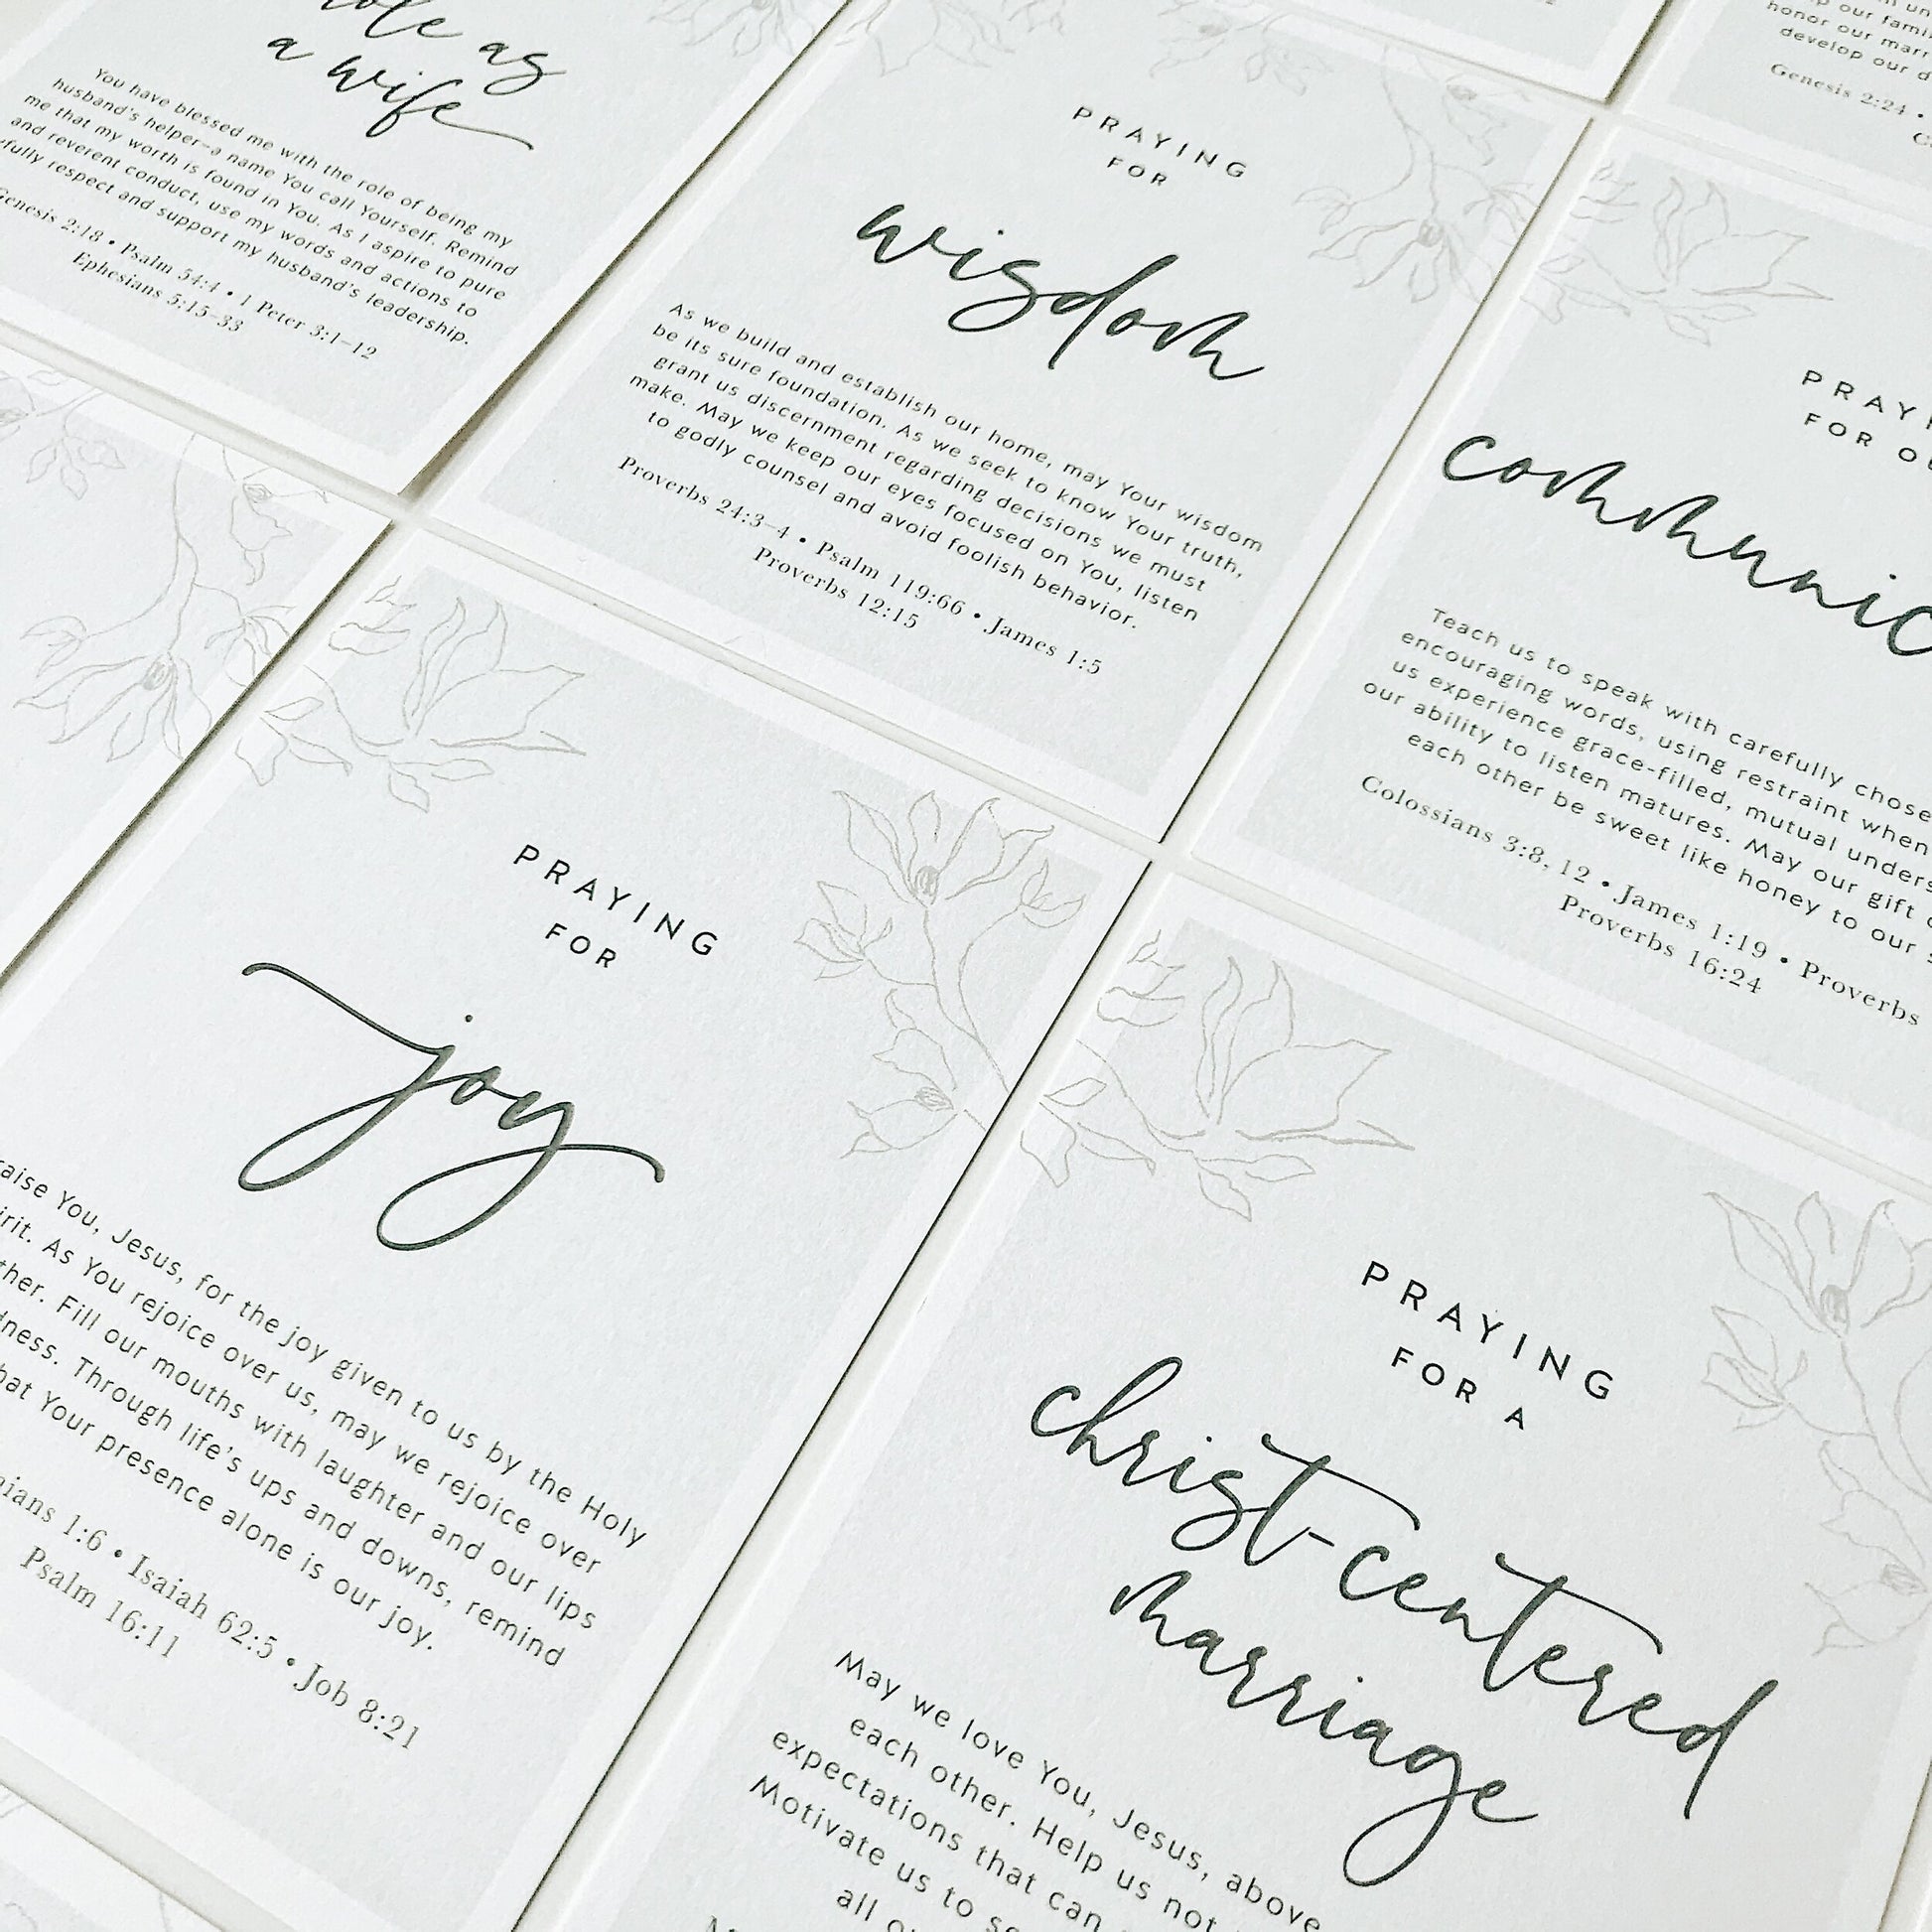 role as
a wife
You have blessed me with the role of being my
husband's helper–a name You call Yourself. Remind
me that my worth is found in You. As I aspire to pure
and reverent conduct, use my words and actions to
respect and support my husband's leadership.
Genesis 2:18 • Psalm 54:4 • 1 Peter 3:1–12
Ephesians 5:15–33
PRAYING
FOR
wisdom
As we build and establish our home, may Your wisdom
be its sure foundation. As we seek to know Your truth,
grant us discernment regarding decisions we must
make. May we keep our eyes focused on You, listen
to godly counsel and avoid foolish behavior.
Proverbs 24:3–4 • Psalm 119:66 • James 1:5
Proverbs 12:15
our
honor our
develop our
Genesis 2:24 •
FOR
communic
Teach us to speak with carefully
encouraging words, using restraint when
us experience grace-filled, mutual
our ability to listen matures. May our gift
each other be sweet like honey to our
Colossians 3:8, 12 • James 1:19 • Proverbs
Proverbs 16:24
PRAYING
FOR
joy
You, Jesus, for the joy given to us by the Holy
As You rejoice over us, may we rejoice over
Fill our mouths with laughter and our lips
Through life's ups and downs, remind
Your presence alone is our joy.
1:6 • Isaiah 62:5 • Job 8:21
Psalm 16:11
PRAYING
FOR A
christ-centered
marriage
May we love You, Jesus, above
each other. Help us not
expectations that can
Motivate us to
all